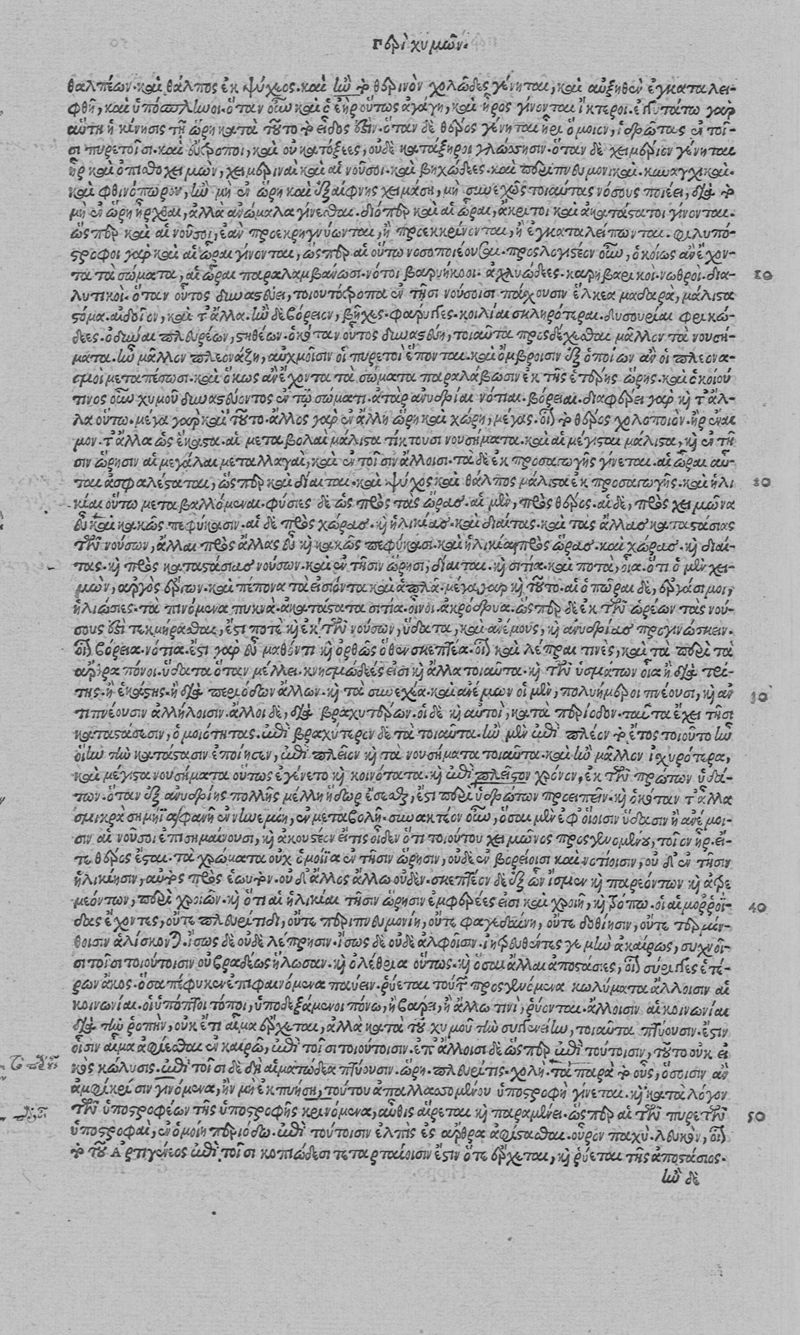 Περὶ χυμῶν.
θαλπέων. καὶ θάλπος ἐκ ψύχεος. καὶ ἢν τὸ θερινὸν χολῶδες γένηται, καὶ αὐξηθὲν ἐγκαταλει-
φθῇ, καὶ ὑπόσπληνοι. ὅταν οὖν καὶ ὁ ἐὴρ οὕτως ἀγάγῃ, καὶ ἦρος γίνονται ἴκτεροι. ἐγγυτάτω γὰρ
αὕτη ἡ κίνησις τῇ ὥρῃ κατὰ τοῦτο τὸ εἶδός ἐστιν. ὅταν δὲ θέρος γένηται ἦρι ὅμοιον, ἱδρῶτας ἐν τοῖ-
σι πυρετοῖσι. καὶ εὔτροποι, καὶ οὐ κατόξεες, οὐδὲ κατάξηροι γλώσσῃσιν. ὅταν δὲ χειμέριον γένηται
ἦρ καὶ ὀπισθοχειμὼν, χειμέριναι καὶ αἱ νοῦσοι. καὶ βηχώδεες. καὶ περιπνευμονικαὶ. καὶ κυναγχικαὶ.
καὶ φθινόπωρον, ἢν μὴ ἐν ὥρῃ καὶ ἐξαίφνης χειμάσῃ, μὴ συνεχῶς τοιαύτας νόσους ποιέει, διὰ τὸ
μὴ ἐν ὥρῃ ἦρχθαι, ἀλλὰ ἀνώμαλα γίνεσθαι. διόπερ καὶ αἱ ὧραι, ἄκριτοι καὶ ἀκατάστατοι γίνονται.
ὥσπερ καὶ αἱ νοῦσοι, ἐὰν προεκρηγνύωνται, ἢ προεκκρίνονται, ἢ ἐγκαταλείπωνται. φιλυπό-
στροφοι γὰρ καὶ αἱ ὧραι γίνονται, ὥσπερ αἱ οὕτω νοσοποιέουσαι. προσλογιστέον οὖν, ὁκοίως ἂν ἔχον-
τα τὰ σώματα, αἱ ὧραι παραλαμβάνωσι. νότοι βαρυήκοοι. ἀχλυώδεες. καρηβαρικοὶ. νωθροὶ. δια-
20
λυτικοὶ. ὅταν οὗτος δυναστεύει, τοιουτότροπα ἐν τῇσι νούσοισι πάσχουσιν ἕλκεα μαδαρὰ, μάλιστα
στόμα. αἰδοῖον, καὶ τ' ἄλλα. ἢν δὲ βόρειον, βῆχες. φάρυγγες. κοιλίαι σκληρότεραι. δυσουρίαι φρικώ-
δεες. ὀδύναι πλευρέων, στηθέων. ὁκόταν οὗτος δυναστεύῃ, τοιαῦτα προσδέχεσθαι μᾶλλον τὰ νουσή-
ματα. ἢν μᾶλλον πλεονάζῃ, αὐχμοῖσιν οἱ πυρετοὶ ἕπονται. καὶ ὄμβροισιν ἐξ ὁποίων ἂν οἱ πλεονα-
σμοὶ μεταπέσωσι. καὶ ὅκως ἂν ἔχοντα τὰ σώματα παραλάβωσιν ἐκ τῆς ἑτέρης ὥρης. καὶ ὁκοίου
τινος οὖν χυμοῦ δυναστεύοντος ἐν τῷ σώματι. ἀτὰρ ἀνυδρίαι νότιαι. βόρειαι. διαφέρει γὰρ κ̀ τ' ἄλ-
λα οὕτω. μέγα γὰρ καὶ τοῦτο. ἄλλος γὰρ ἐν ἄλλῃ ὥρῃ καὶ χώρῃ, μέγας. οἷον τὸ θέρος χολοποιόν. ἦρ ἔναι
μον. τ' ἄλλα ὡς ἕκαστα. αἱ μεταβολαὶ μάλιστα τίκτουσι νουσήματα. καὶ αἱ μέγισται μάλιστα, κ̀ ἐν τῇ
σιν ὥρῃσιν αἱ μεγάλαι μεταλλαγαὶ, καὶ ἐν τοῖσιν ἄλλοισι. τὰ δὲ ἐκ προσαγωγῆς γίνεται. αἱ ὧραι αὗ-
ται ἀσφαλέσταται, ὥσπερ καὶ δίαιται. καὶ ψύχος καὶ θάλπος μάλιστα ἐκ προσαγωγῆς. καὶ ἡλι
30
κίαι οὕτω μεταβαλλόμεναι. φύσιες δὲ ὡς πρὸς τὰς ὥρας. αἱ μὲν, πρὸς θέρος. αἱ δὲ, πρὸς χειμῶνα
εὖ καὶ κακῶς πεφύκασιν. αἱ δὲ πρὸς χώρας. κ̀ ἡλικίας. καὶ διαίτας. καὶ τὰς ἄλλας καταστάσιας
τῶν νούσων, ἄλλαι πρὸς ἄλλας εὖ κ̀ κακῶς πεφύκασι. καὶ ἡλικίαι πρὸς ὥρας. καὶ χώρας. κ̀ διαί-
τας. κ̀ πρὸς καταστάσιας νούσων. καὶ ἐν τῇσιν ὥρῃσι, δίαιται. κ̀ σιτία. καὶ ποτὰ, οἷα. ὅτι ὁ μὲν χει-
μὼν, ἀργὸς ἔργων. καὶ πέπονα τὰ εἰσιόντα καὶ ἁπλᾶ. μέγα γὰρ κ̀ τοῦτο. αἱ ὀπῶραι δὲ, ἐργάσιμοι,
ἡλιώσιες. τὰ πινόμενα πυκνὰ. ἀκατάστατα σιτία. οἶνοι. ἀκρόδρυα. ὥσπερ δὲ ἐκ τῶν ὡρέων τὰς νού-
σους ἐστὶ τεκμήρασθαι, ἔστι ποτὲ κ̀ ἐκ τῶν νούσων, ὕδατα, καὶ ἀνέμους, κ̀ ἀνυδρίας προγινώσκειν.
οἷον βόρεια. νότια. ἔστι γὰρ εὖ μαθόντι κ̀ ὀρθῶς ὅθεν σκεπτέα. οἷον καὶ λέπραι τινὲς, καὶ τὰ περὶ τὰ
ἄρθρα πόνοι. ὕδατα ὅταν μέλλει. κνησμώδεές εἰσι κ̀ ἄλλα τοιαῦτα. κ̀ τῶν ὑσμάτων οἷα ἢ διὰ τρί-
της. ἢ ἑκάστης. ἢ διὰ περιόδων ἄλλων. κ̀ τὰ συνεχέα. καὶ ἀνέμων οἱ μὲν, πολυήμεροι πνέουσι, κ̀ ἀν
30
τιπνέουσιν ἀλλήλοισιν. ἄλλοι δὲ, διὰ βραχυτέρων. οἱ δὲ κ̀ αὐτοὶ, κατὰ περίοδον. ταῦτα ἔχει τῇσι
καταστάσεσιν, ὁμοιότητας. ἐπὶ βραχύτερον δὲ τὰ τοιαῦτα. ἢν μὲν ἐπὶ πλέον τὸ ἔτος τοιοῦτο ἐὸν
οἵην τὴν κατάστασιν ἐποίησεν, ἐπὶ πλεῖον κ̀ τὰ νουσήματα τοιαῦτα. καὶ ἢν μᾶλλον ἰσχυρότερα,
καὶ μέγιστα νουσήματα οὕτως ἐγένετο κ̀ κοινότατα. κ̀ ἐπὶ πλεῖστον χρόνον, ἐκ τῶν πρώτων ὑδά-
των. ὅταν ἐξ ἀνυδρίης πολλῆς μέλλῃ ὕδωρ ἔσεσθαι, ἔστι περὶ ὑδρώπων προειπεῖν. κ̀ ὁκόταν τ' ἄλλα
σμικρὰ σημήϊα φανῇ ἐν νηνεμίῃ, ἐν μεταβολῇ. συνακτέον οὖν, ὅσαι μὲν ἐφ' οἵοισιν ὕδασιν ἢ ἀνέμοι-
σιν αἱ νοῦσοι ἐπισημαίνουσι, κ̀ ἀκουστέον εἴτις οἶδεν ὅτι τοιούτου χειμῶνος προσγενομένου, τοῖον ἦρ. εἴ-
τε θέρος ἔσται. τὰ χρώματα οὐχ ὁμοῖα ἐν τῇσιν ὥρῃσιν, οὐδὲ ἐν βορείοισι καὶ νοτίοισιν, οὐδ' ἐν τῇσιν
ἡλικίῃσιν, αὐτὸς πρὸς ἑωυτόν. οὐδ' ἄλλος ἄλλῳ οὐδέν. σκεπτέον δὲ ἐξ ὧν ἴσμεν κ̀ παρεόντων κ̀ ἀτρε
μεόντων, περὶ χροιῶν. κ̀ ὅτι αἱ ἡλικίαι τῇσιν ὥρῃσιν ἐμφερέες εἰσὶ καὶ χροιῇ, κ̀ τρόπῳ. οἱ αἱμορροΐ-
40
δας ἔχοντες, οὔτε πλευρίτιδι, οὔτε περιπνευμονίῃ, οὔτε φαγεδαίνῃ, οὔτε δοθιῆσιν, οὔτε τερμίν-
θοισιν ἁλίσκονται. ἴσως δὲ οὐδὲ λέπρῃσιν. ἴσως δὲ οὐδὲ ἀλφοῖσιν. ἰητρευθέντες γε μὴν ἀκαίρως, συχνοὶ-
σι τοῖσι τοιούτοισιν οὐ βραδέως ἥλωσαν. κ̀ ὀλέθρια οὕτως. κ̀ ὅσαι ἄλλαι ἀποστάσιες, οἷον σύριγγες ἑτέ-
ρων ἄκος. ὅσα πέφυκεν ἐπιφαινόμενα παύειν. ῥύεται τούτων προσγενόμενα κωλύματα ἄλλοισιν αἱ
κοινωνίαι. οἱ ὕποπτοι τόποι, ὑποδεξάμενοι πόνῳ, ἢ βάρει, ἢ ἄλλῳ τινὶ, ῥύονται. ἄλλοισιν αἱ κοινωνίαι
διὰ τὴν ῥοπὴν, οὐκ ἔτι αἷμα ἔρχεται, ἀλλὰ κατὰ τοῦ χυμοῦ τὴν συγγένειαν, τοιαῦτα πτύουσιν. ἔστιν
οἷσιν αἷμα ἀφίεσθαι ἐν καιρῷ, ἐπὶ τοῖσι τοιούτοισιν. ἐπ' ἄλλοισι δὲ ὥσπερ ἐπὶ τούτοισιν, τοῦτο οὐκ εἰ
κὸς κώλυσις. ἐπὶ τοῖσι δὲ δὴ αἱματώδεα πτύουσιν. ὥρῃ. πλευρῖτις. χολή. τὰ παρὰ τὸ οὖς, ὅσοισιν ἂν
ἀμφὶ κρίσιν γινόμενα, ἢν μὴ ἐκπυήσῃ, τούτου ἀπαλλασσομένου ὑποστροφὴ γίνεται. κ̀ κατὰ λόγον
τῶν ὑποστροφέων τῆς ὑποστροφῆς κρινόμενα, αὖθις αἴρεται κ̀ παραμένει. ὥσπερ αἱ τῶν πυρετῶν
50
ὑποστροφαὶ, ἐν ὁμοίῃ περιόδῳ. ἐπὶ τούτοισιν ἐλπὶς ἐς ἄρθρα ἀφίστασθαι. οὖρον παχὺ. λευκὸν, οἷον
τὸ τοῦ Ἀρτιγένεος ἐπὶ τοῖσι κοπιώδεσι τεταρταίοισιν ἔστιν ὅτε ἔρχεται, κ̀ ῥύεται τῆς ἀποστάσιος.
ἢν δὲ